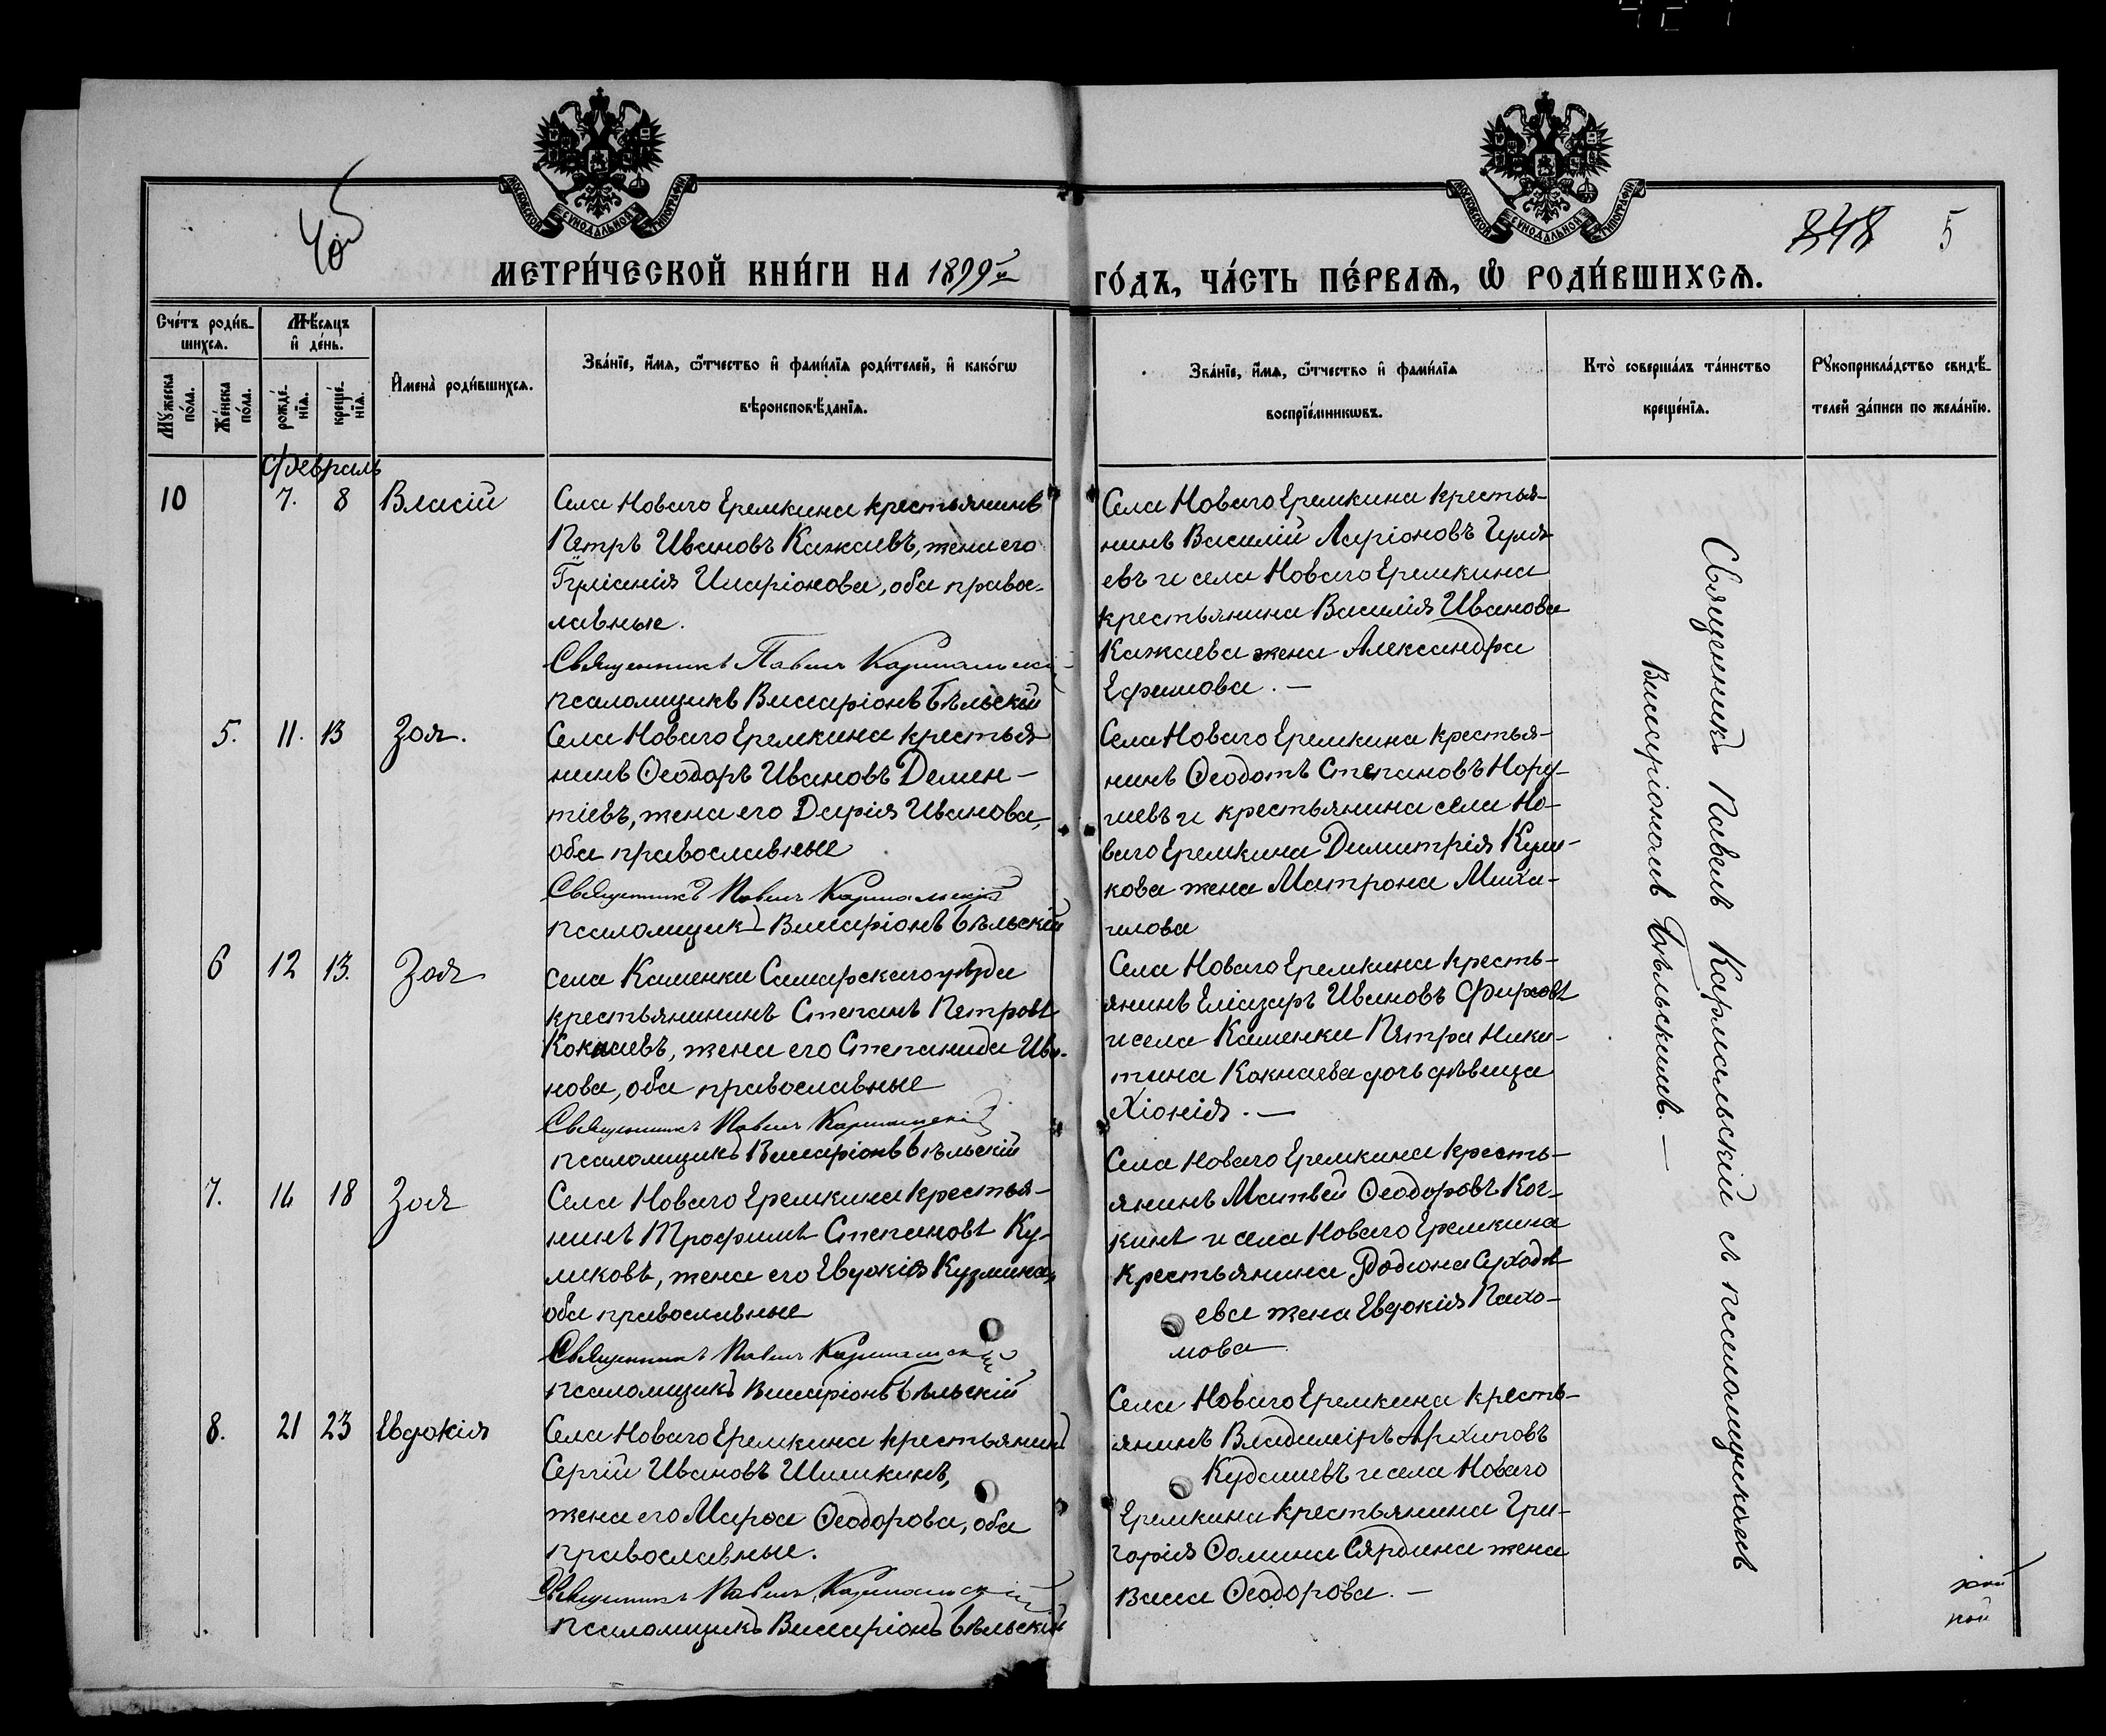 МОСКОВСКОЙ СѴНОДАЛЬНОЙ ТИПОГРАФІИ
МОСКОВСКОЙ СѴНОДАЛЬНОЙ ТИПОГРАФІИ
848 5
МЕТРИ́ЧЕСКОЙ КНИ́ГИ НА 1899й
ГО́ДЪ, ЧА́СТЬ ПЕ́РВАѦ, Ѡ҆ РОДИ́ВШИХСѦ.
Сче́тъ роди́в-
шихсѧ.
Мѣ́сѧцъ
и҆ де́нь.
Мꙋ́жеска
по́ла.
Же́нска
по́ла.
рожде́-
нїѧ.
креще́-
нїѧ.
И҆мена̀ роди́вшихсѧ.
Зва́нїе, и҆́мѧ, ѻ҆́тчество и҆ фами́лїѧ роди́телей, и҆ како́гѡ
вѣроисповѣ́данїѧ.
Зва́нїе, и҆́мѧ, ѻ҆́тчество и҆ фами́лїѧ
воспрїе́мникѡвъ.
Кто̀ соверша́лъ та́инство
креще́нїѧ.
Рꙋкоприкла́дство свидѣ́-
телей за́писи по жела́нїю.
Февраль
10 7. 8 Власій
Села Новаго Еремкина крестьянинъ
Петръ Ивановъ Кажаевъ, жена его
Іуліанія Иларіонова, оба правос-
лавные.
Священникъ Павелъ Кармальскій
псаломщикъ Виссаріонъ Бѣльскій
Села Новаго Еремкина крестья-
нинъ Василій Ларіоновъ Гуля-
евъ и села Новаго Еремкина
крестьянина Василія Иванова
Кажаева жена Александра
Ефимова. —
5. 11. 13 Зоя.
Села Новаго Еремкина крестья-
нинъ Ѳеодоръ Ивановъ Демен-
тіевъ, жена его Дарія Иванова,
оба православные
Священникъ Павелъ Кармальскій
псаломщикъ Виссаріонъ Бѣльскій
Села Новаго Еремкина крестья-
нинъ Ѳеодотъ Степановъ Нору-
шевъ и крестьянина села Но-
ваго Еремкина Димитрія Кули-
кова жена Матрона Миха-
илова
6 12 13. Зоя
села Каменки Самарскаго уѣзда
крестьянинъ Степанъ Петровъ
Кокнаевъ, жена его Степанида Ива-
нова, оба православные
Священникъ Павелъ Кармальскій
псаломщикъ Виссаріонъ Бѣльскій
Села Новаго Еремкина кресть-
янинъ Еліазаръ Ивановъ Фирсовъ
и села Каменки Петра Ники-
тина Кокнаева дочь дѣвица
Хіонія. —
7. 16 18 Зоя
Села Новаго Еремкина крестья-
нинъ Трофимъ Степановъ Ку-
ликовъ, жена его Евдокія Кузмина,
оба православные
Священникъ Павелъ Кармальскій
псаломщикъ Виссаріонъ Бѣльскій
Села Новаго Еремкина кресть-
янинъ Матвей Ѳеодоровъ Коч-
кинъ и села Новаго Еремкина
крестьянина Родіона Суходѣ
ева жена Евдокія Пахо-
мова
8. 21 23 Евдокія
Села Новаго Еремкина крестьянинъ
Сергій Ивановъ Шишкинъ,
жена его Марѳа Ѳеодорова, оба
православные.
Священникъ Павелъ Кармальскій
псаломщикъ Виссаріонъ Бѣльскій
Села Новаго Еремкина кресть-
янинъ Владиміръ Архиповъ
Кудашевъ и села Новаго
Еремкина крестьянина Гри-
горія Ѳомина Сярдина жена
Васса Ѳеодорова. —
Священникъ Павелъ Кармальскій съ псаломщикомъ
Виссаріономъ Бѣльскимъ. —